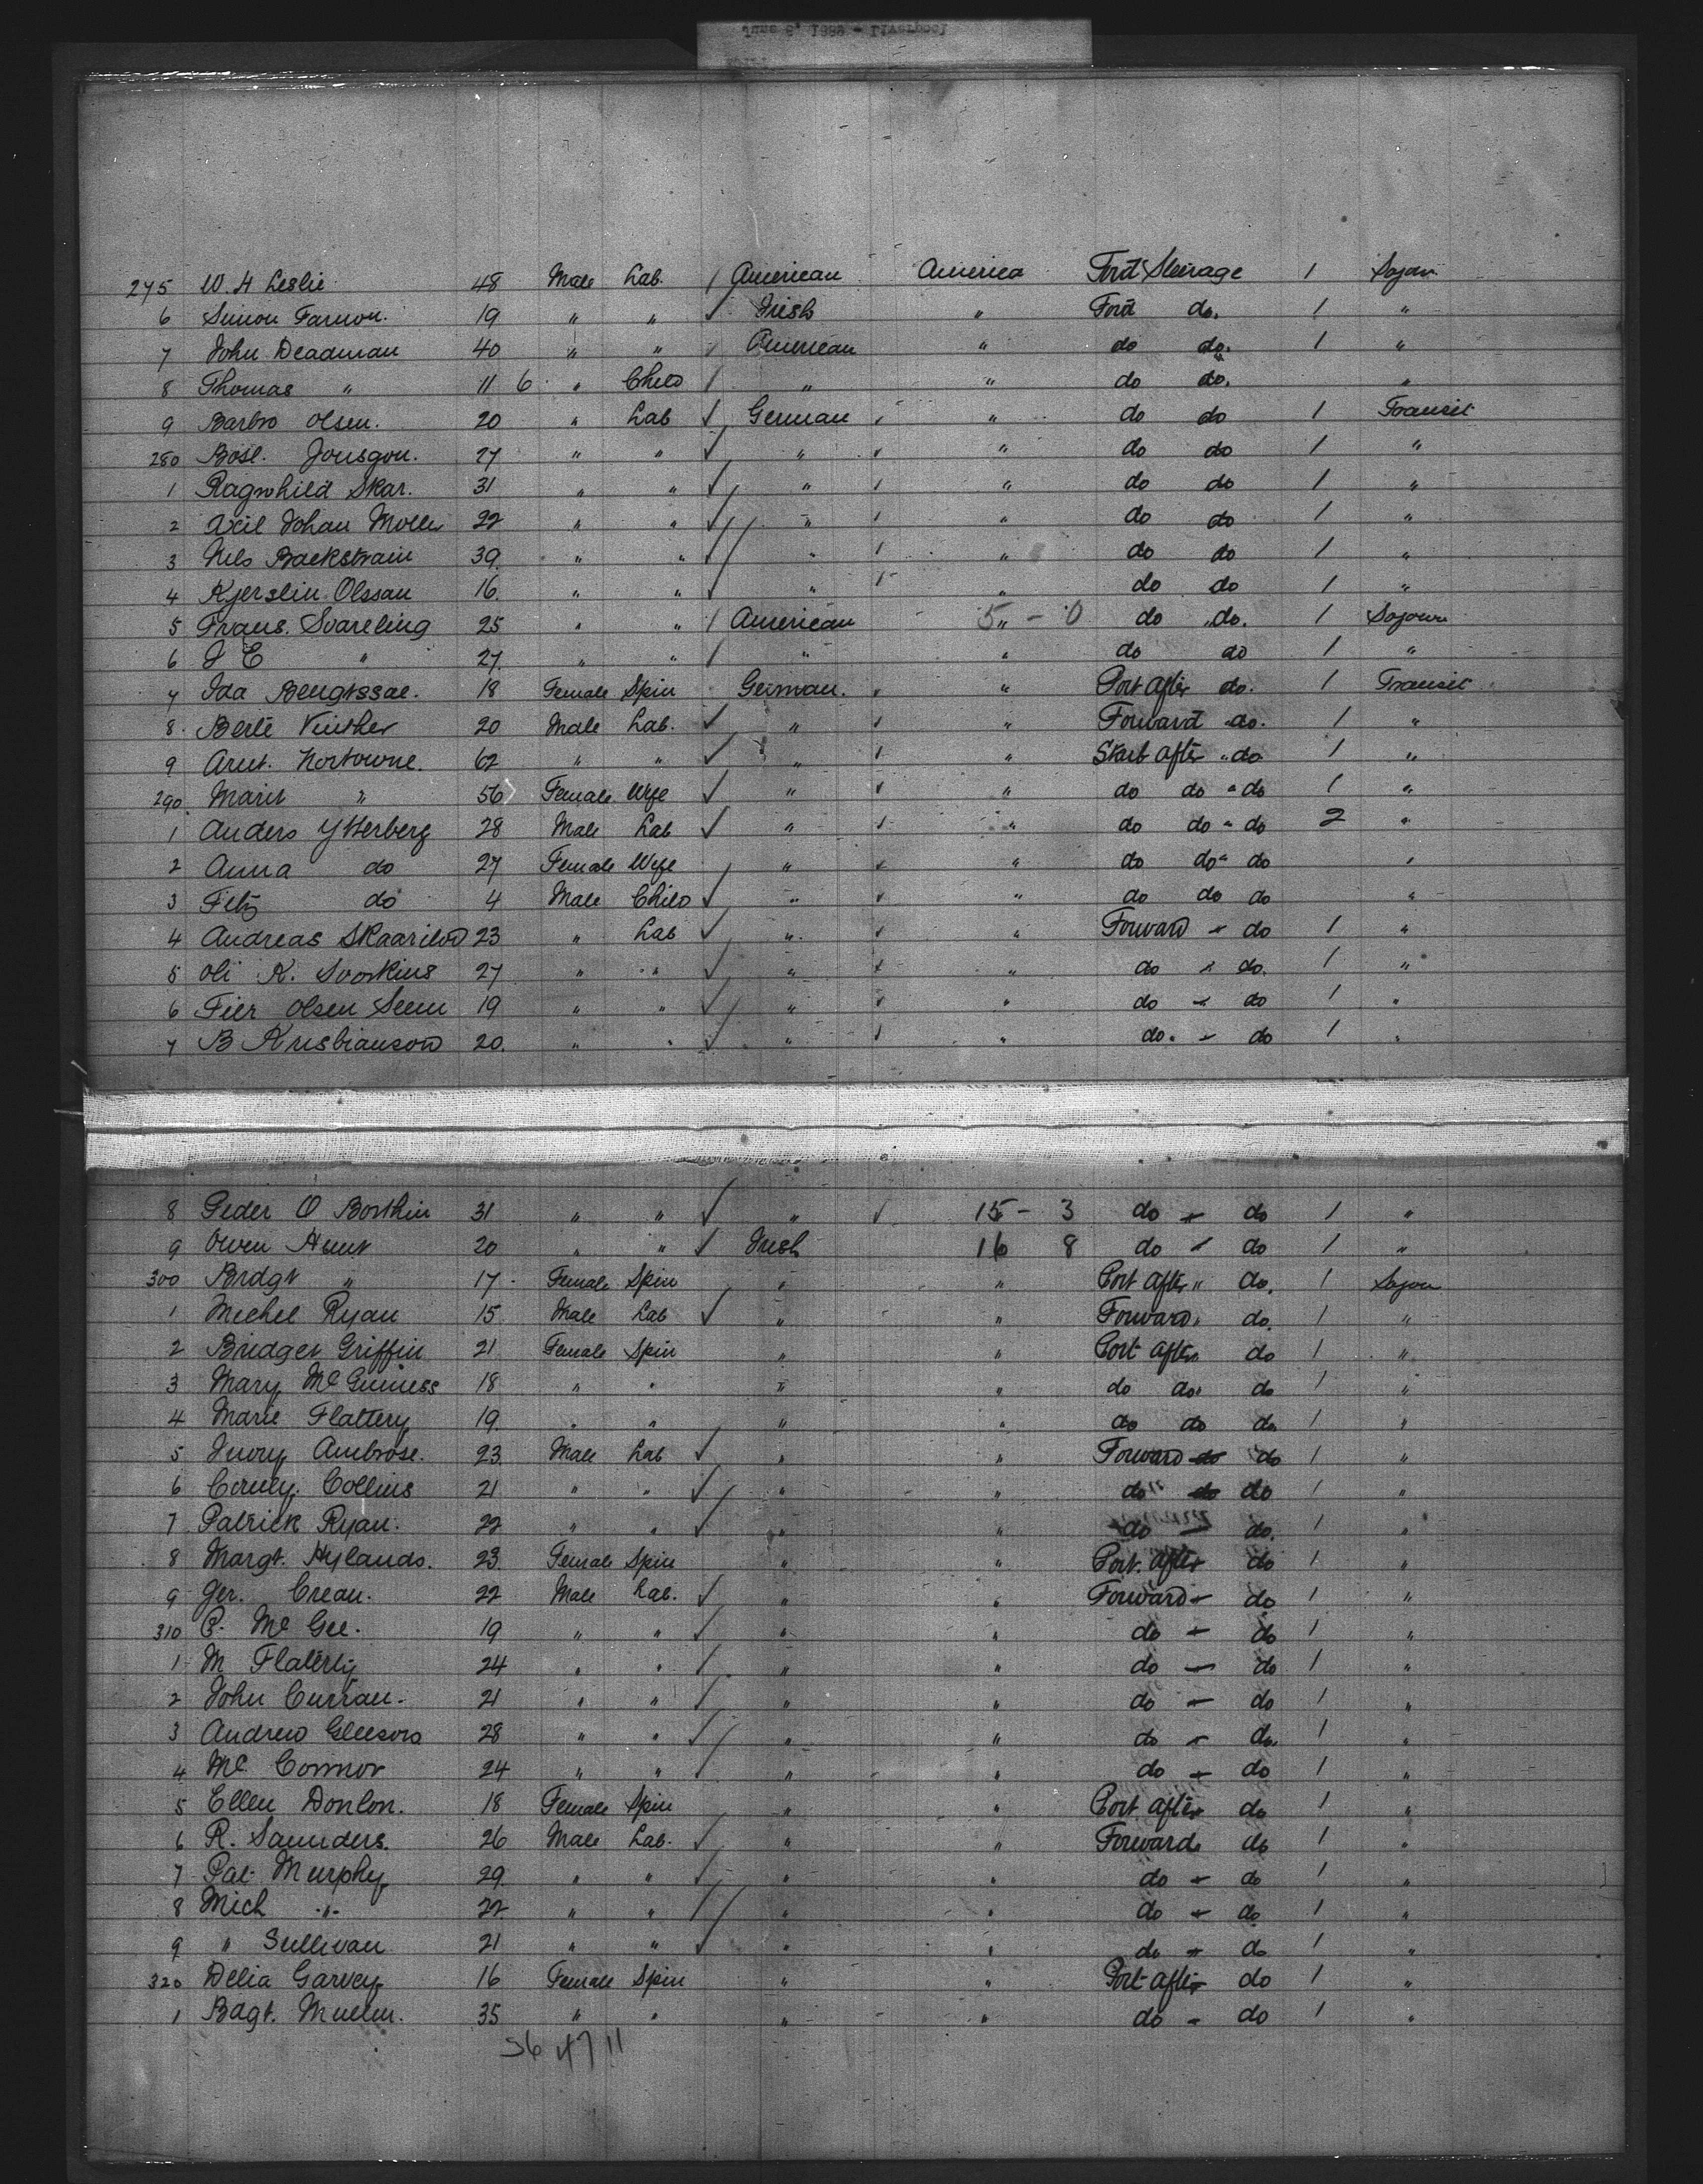 275 W. H Leslie 48 Male Lab. / American America Ford Steerage 1 Sojour
6 Simon Farmon. 19 " " ✓ Irish " Ford do. 1 "
7 John Deadman 40 " " / American " do do. 1 "
8 Thomas " 11 6 " Child / " " do do. "
9 Barbro Olsen. 20 " Lab ✓ German " do do 1 Transit
280 Bosl. Jonsgon. 27 " " ✓ " " do do 1 "
1 Ragnhild Skar. 31 " " ✓ " " do do 1 "
2 Axil Johan Moller 22 " " ✓ " " do do 1 "
3 Nils Backstrain 39. " " ✓ " " do do 1 "
4 Kjerslin Olssan 16. " " ✓ " " do do 1 "
5 Frans. Svareling 25 " " / American 5 " - 0 do do. 1 Sojour
6 J E " 27. " " / " " do do 1 "
7 Ida Bengtssae. 18 Female Spin German. " Port after do. 1 Transit
8. Berte Vinther 20 Male Lab. ✓ " " Forward do. 1 "
9 Arnt. Nortowne. 62 " " ✓ " " Start after " do 1 "
290 Marit " 56 Female Wife ✓ " " do do " do 1 "
1 Anders Ytterberg 28 Male Lab ✓ " " do do " do 2 "
2 Anna do 27 Female Wife " " do do " do "
3 Fitz do 4 Male Child ✓ " " do do do "
4 Andreas Skaarilod 23 " Lab ✓ " " Forward " do 1 "
5 Oli K. Svorkins 27 " " ✓ " " do " do. 1 "
6 Fier Olsen Seem 19 " " ✓ " " do " do 1 "
7 B Kristianson 20. " " ✓ " " do. " do 1 "
8 Peder O Borthin 31 " " ✓ " 15 - 3 do " do 1 "
9 Owen Hunt 20 " " ✓ Irish 16 8 do " do 1 "
300 Brdgt " 17 Female Spin " " Port after " do. 1 Sojour
1 Michel Ryan 15 Male Lab ✓ " " Forward " do. 1 "
2 Bridget Griffin 21 Female Spin " " Port after do 1 "
3 Mary McGuiness 18 " " " " do do " do 1 "
4 Marie Flattery 19. " " " " do do do. 1 "
5 Ivory Ambrose. 23. Male Lab ✓ " " Forward do do 1 "
6 Collins 21 " " ✓ " " do do do 1 "
7 Patrick Ryan. 22 " " ✓ " " do do. 1 "
8 Margt. Hylands. 23. Female Spin " " Port after do 1 "
9 Jer. Crean. 22 Male Lab. ✓ " " Forward " do 1 "
310 P. McGee. 19 " " ✓ " " do " do 1 "
1 M Flaterty 24 " " / " " do " do 1 "
2 John Curran. 21 " " ✓ " " do " do 1 "
3 Andrew Gleeson 28 " " ✓ " " do " do. 1 "
4 Mc Connor 24 " " ✓ " " do " do 1 "
5 Ellen Donlon. 18 Female Spin " " Port after do 1 "
6 R. Saunders. 26 Male Lab. ✓ " " Forward " do 1 "
7 Pat Murphy 29. " " ✓ " " do " do 1 "
8 Mich " 22 " " / " " do " do 1 "
9 " Sullivan 21 " " ✓ " " do " do 1 "
320 Delia Garvey 16 Female Spin " " Port after do 1 "
1 Bdgt. Mullen. 35 " " " " do " do 1 "
36 47 11